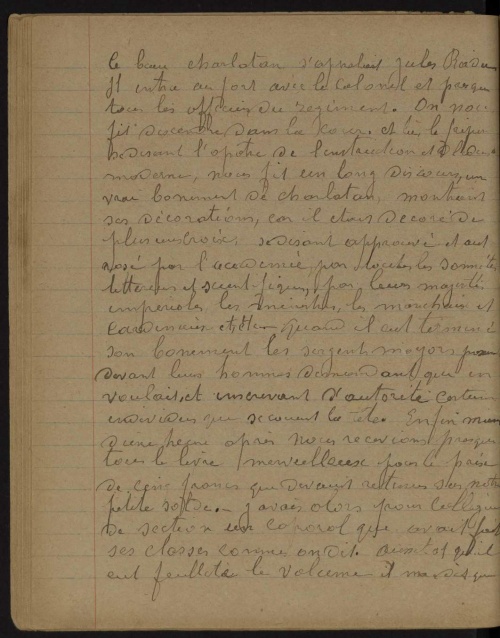 le beau charlatan s'apelait jules Radu
Il entra au fort avec le colonel et presque
tous les officiers du regiment. On nous
fit descendre dans la cour. et là le
se disant l'apotre de l'instruction et
moderne, nous fit un long discours, un
vrai boniment de charlatan, montrant
ses décorations, car il etait decoré de
plusieurs croix. se disant approuvé et
par l'academie, par toutes les sommités
litteraires et scientifiques, par leurs majestés
imperiales, les ministres, les marechaux et
cardinaux Quand il eut terminé
son boniment les sergents majors
devant leurs hommes demandant qui en
voulait, et inscrivant d'autorité certains
individus qui secouaient la tête. Enfin moins
d'une heure apres nous recevions presque
tous le livre merveilleux pour le prix
de cinq francs que devait retenus sur notre
petite solde. – j'avais alors pour collegue
de section un caporal qui avait fait
ses classes comme on dit. aussitot qu'il
eut feuilleté le volume il me dit que